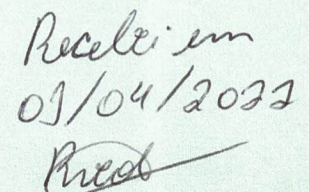 Recebi em
09/04/2022